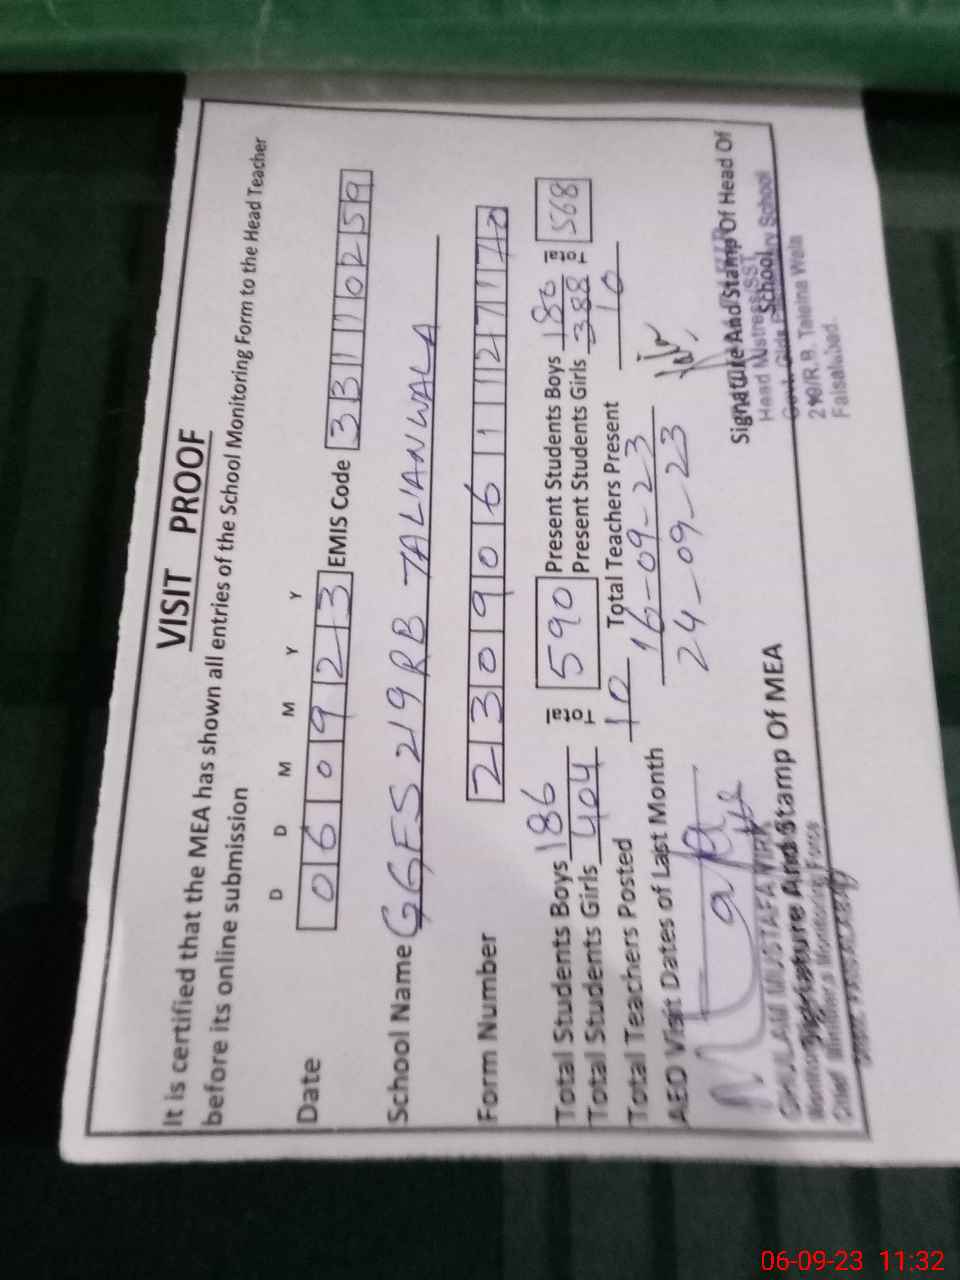 VISIT PROOF
It is certified that the MEA has shown all entries of the School Monitoring Form to the Head Teacher
before its online submission
D D M M Y Y
Date 060923 EMIS Code 33110259
School Name GGES 219 RB TALIANWALA
Form Number 2309061127170
Total Students Boys 186 Total 590 Present Students Boys 180 Total 568
Total Students Girls 404 Present Students Girls 388
Total Teachers Posted 10 Total Teachers Present 10
AEO Visit Dates of Last Month 16-09-23
24-09-23
Signature And Stamp Of MEA
GHULAM MUSTAFA VIRK
Chief Minister's Monitoring Force
Signature And Stamp Of Head Of
School
Head Mistress/SST
Govt. Girls School
R.B. Taleina Wala
Faisalabad.
06-09-23 11:32